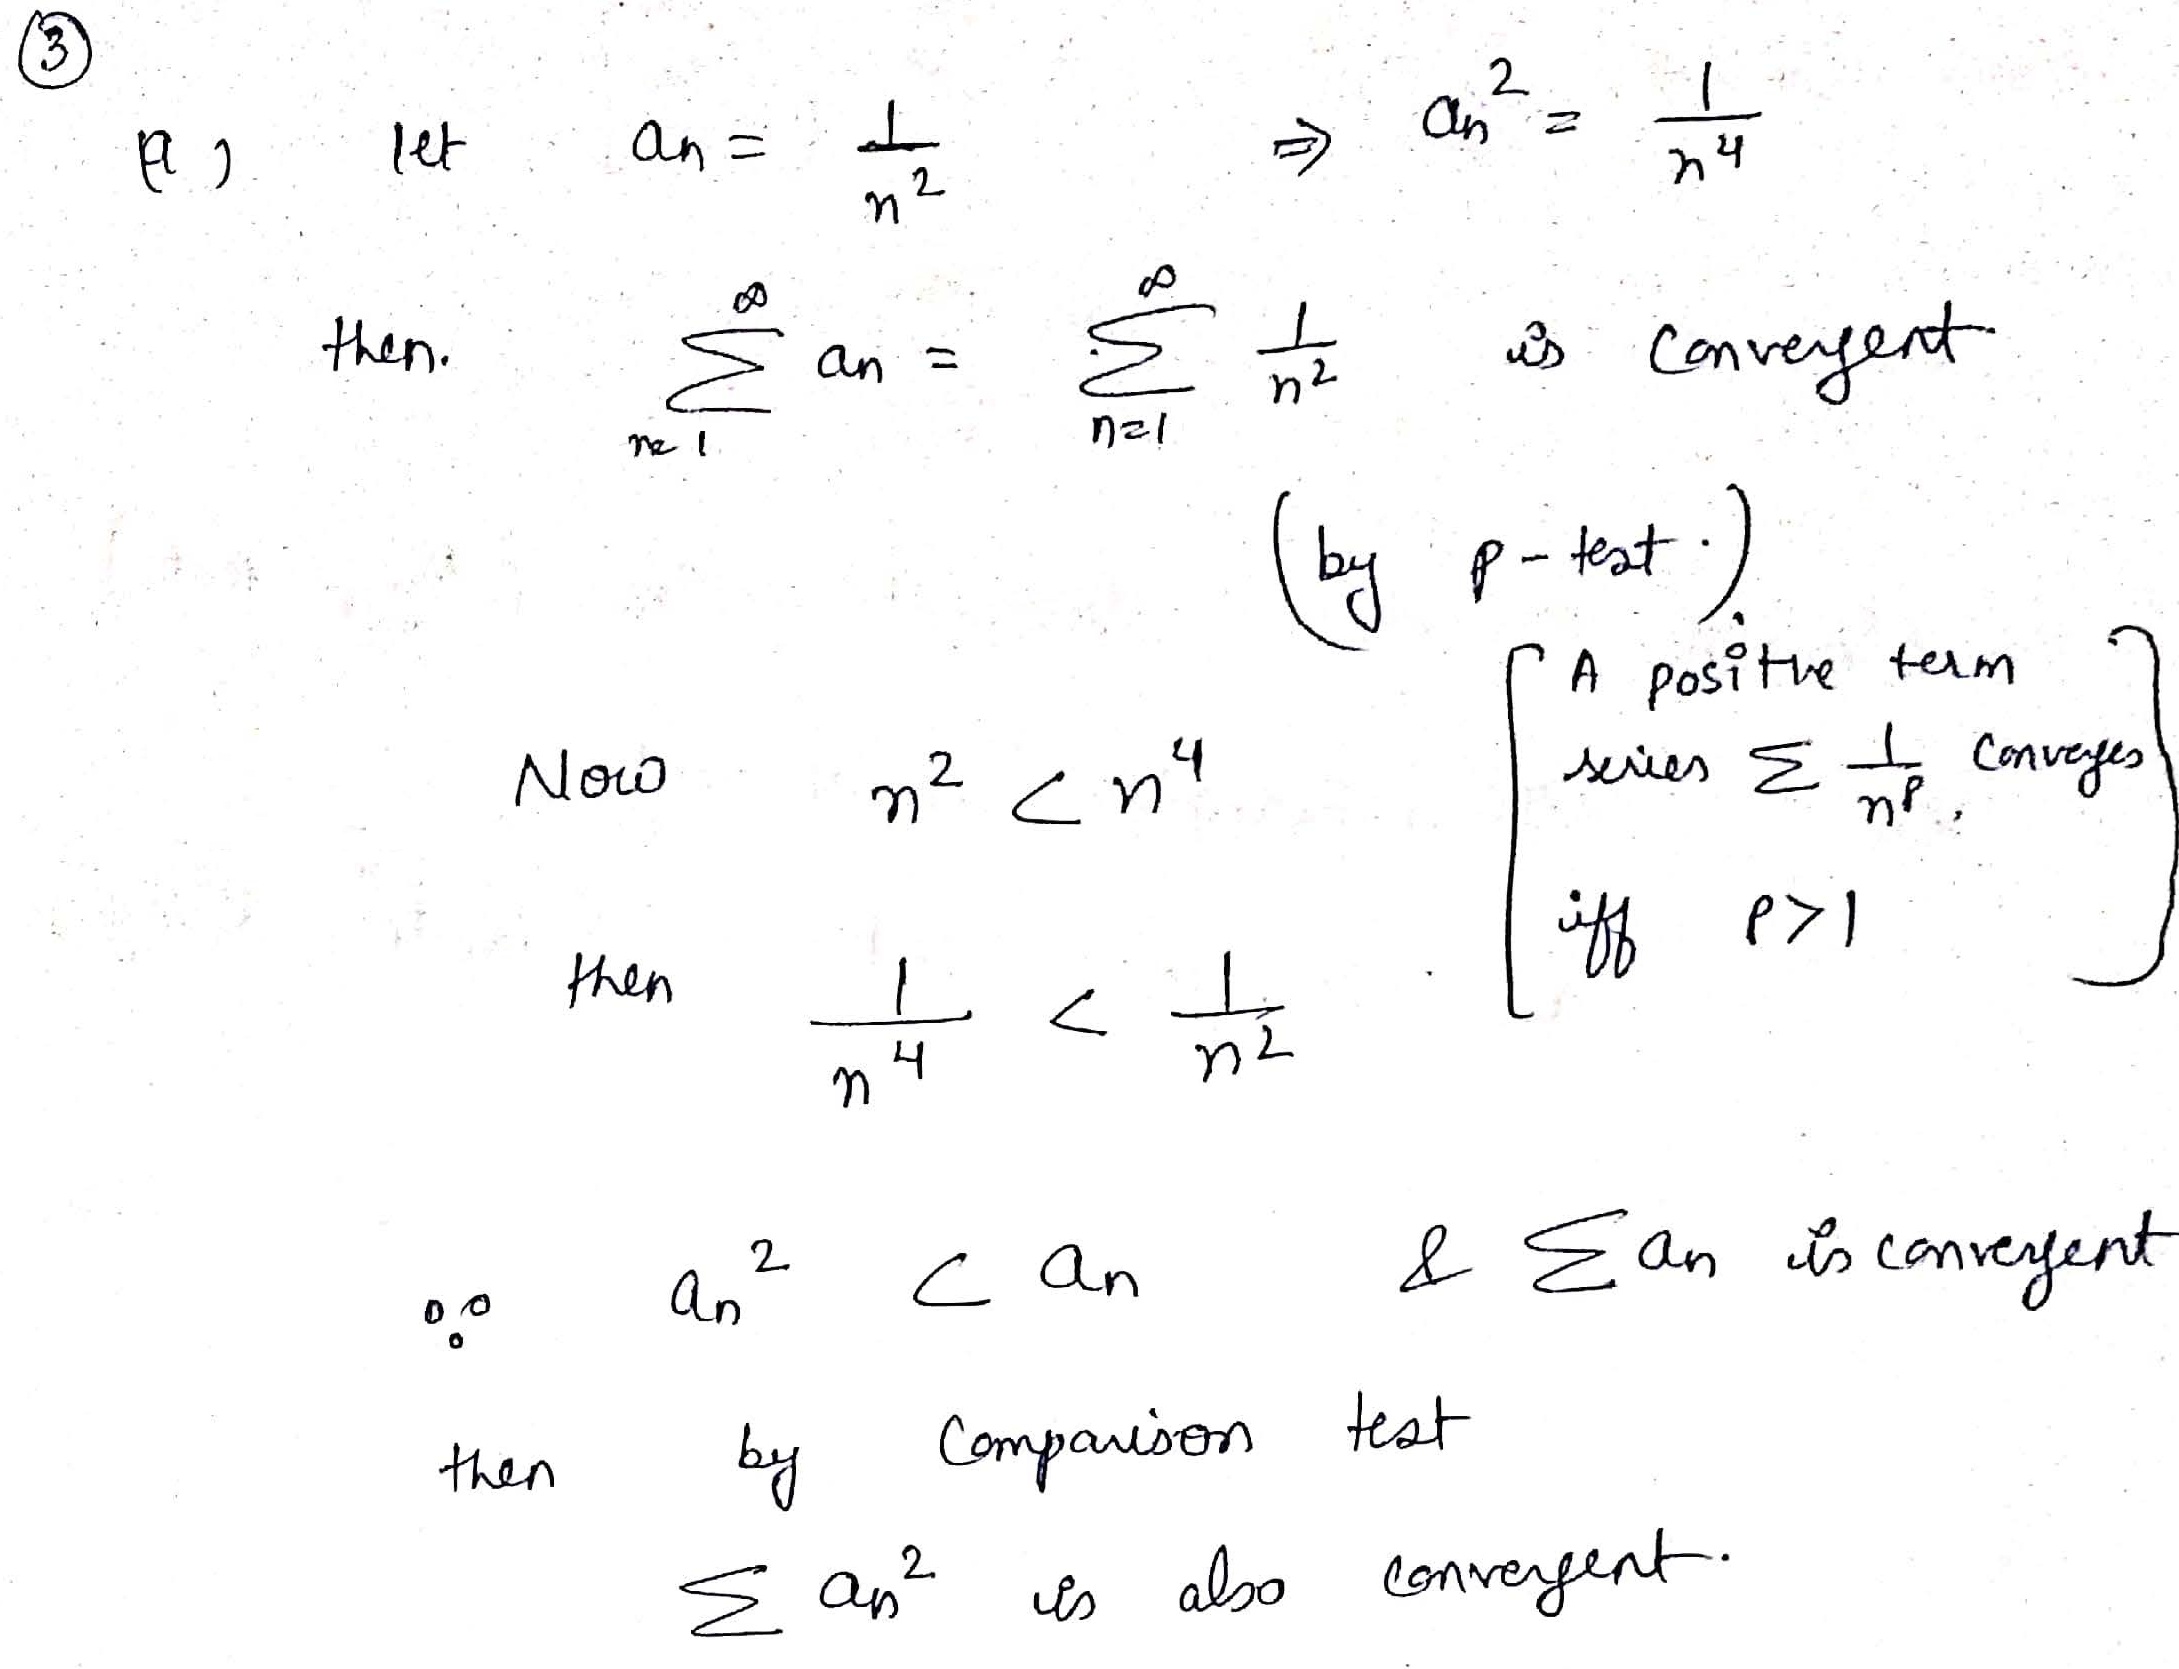 ③
a) let an = 1/n² ⇒ an² = 1/n⁴
then. ∞∑n=1 an = ∞∑n=1 1/n² is convergent
(by p-test.)
[A positive term
series ∑ 1/nᴾ, converges
iff P>1]
Now n² < n⁴
then 1/n⁴ < 1/n²
∵ an² < an & ∑ an is convergent
then by Comparison test
∑ an² is also convergent.